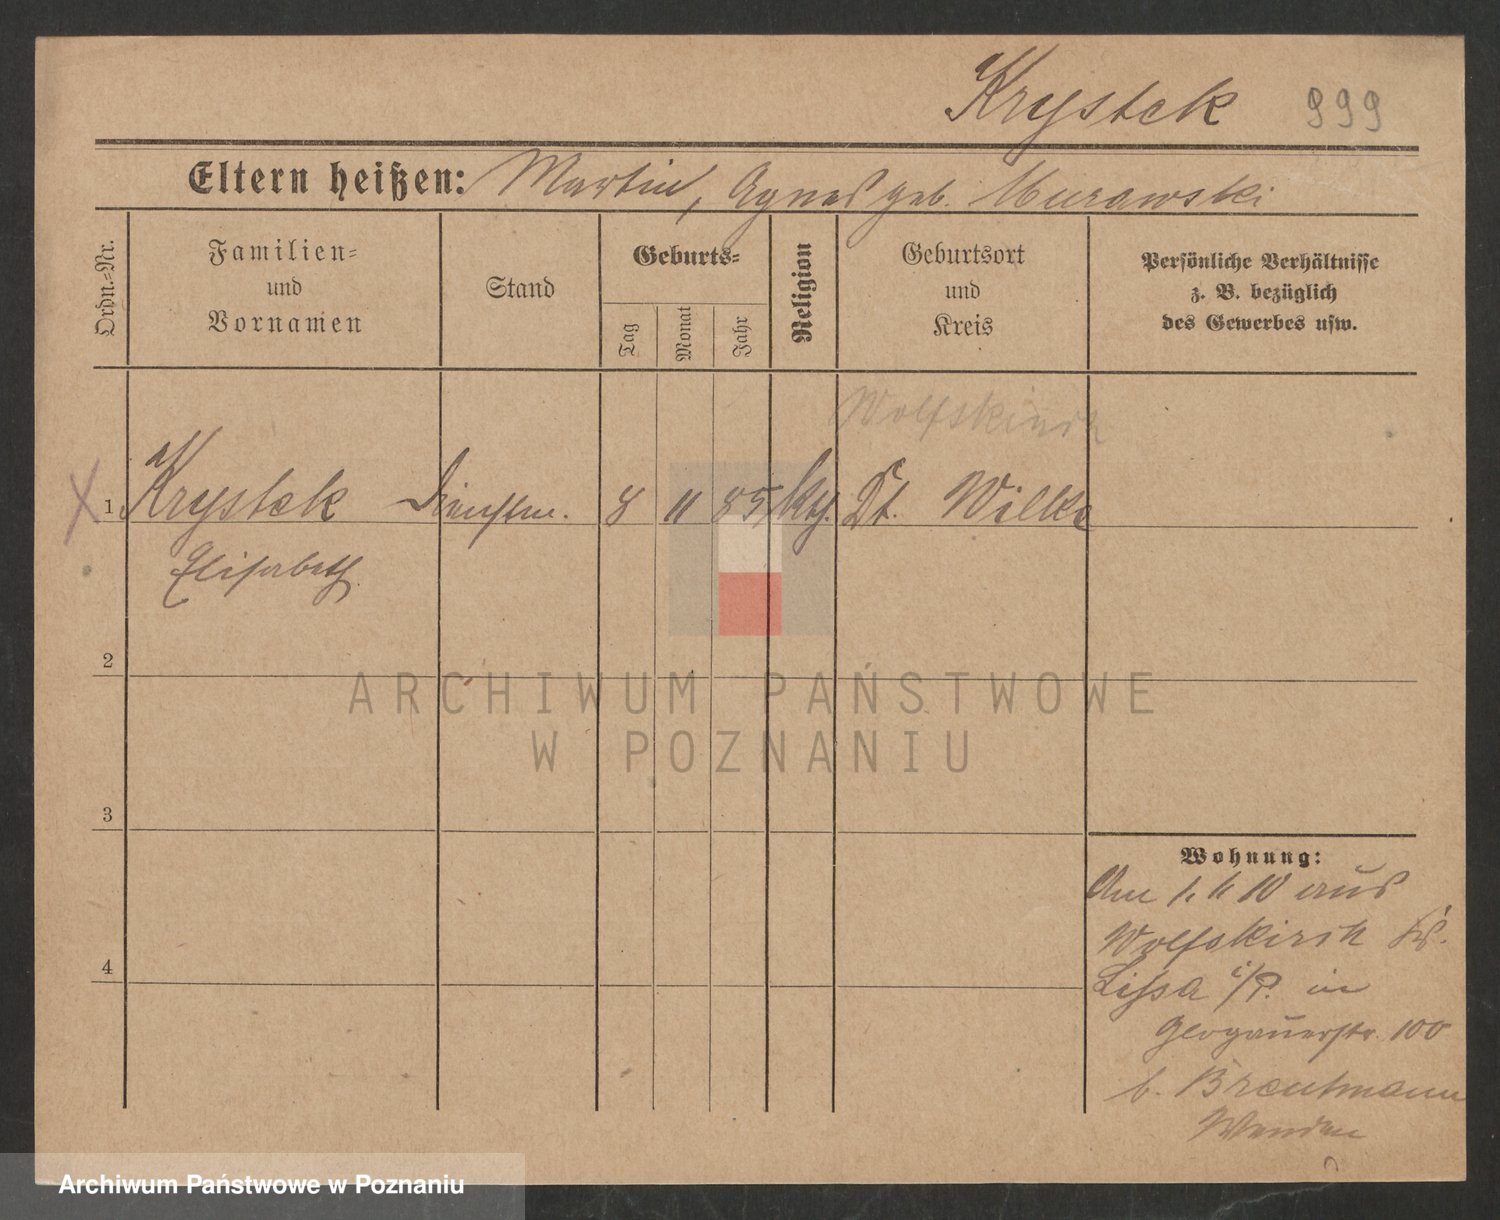 Krystek 999
Eltern heißen: Martin, Agnes geb. Murawski
Ordn.-Nr.
Familien-
und
Vornamen
Stand
Geburts-
Tag
Monat
Jahr
Religion
Geburtsort
und
Kreis
Persönliche Verhältnisse
z. B. bezüglich
des Gewerbes usw.
Wolfskirch
1 Krystek Dienstm. 8 11 85 kth. Dt. Wilke
Elisabeth
2
3
4
Wohnung:
Am 1. 4. 10 aus
Wolfskirch Kr.
Lissa i/P. in
Glogauerstr. 100
b. Brautmann
ARCHIWUM PAŃSTWOWE
W POZNANIU
Archiwum Państwowe w Poznaniu